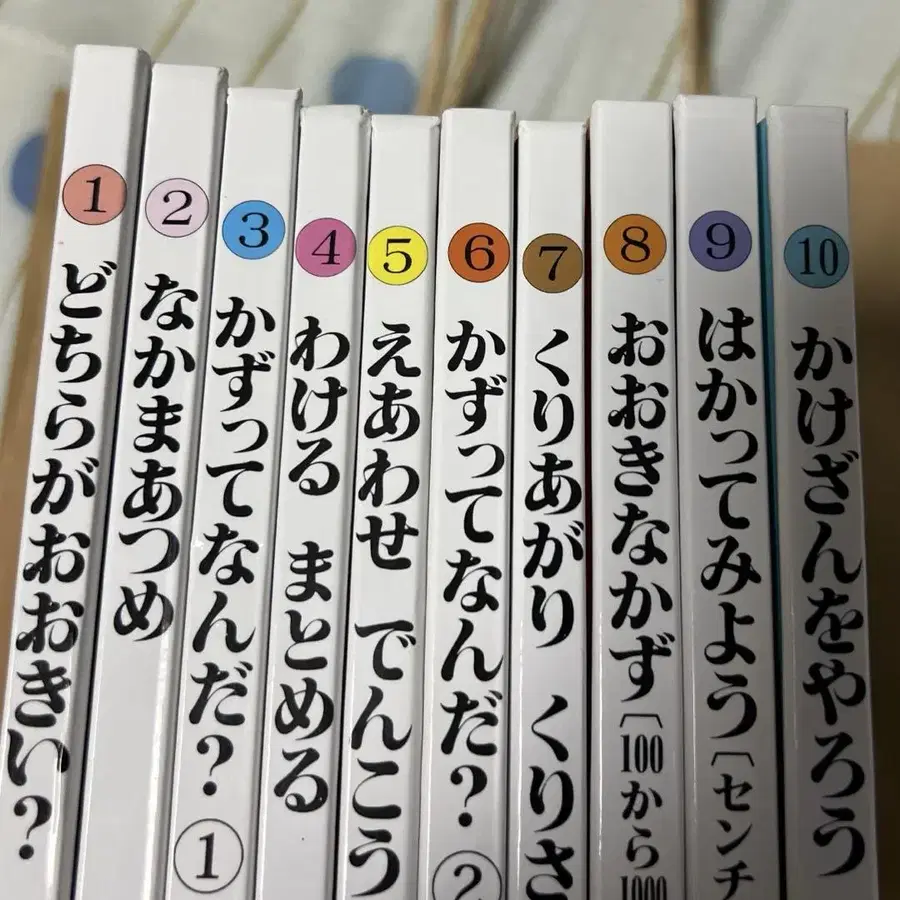 1 どちらがおおきい?
2 なかまあつめ
3 かずってなんだ? ①
4 わける まとめる
5 えあわせ でんこう
6 かずってなんだ? ②
7 くりあがり くりさ
8 おおきなかず〔100から1000
9 はかってみよう〔センチ
10 かけざんをやろう